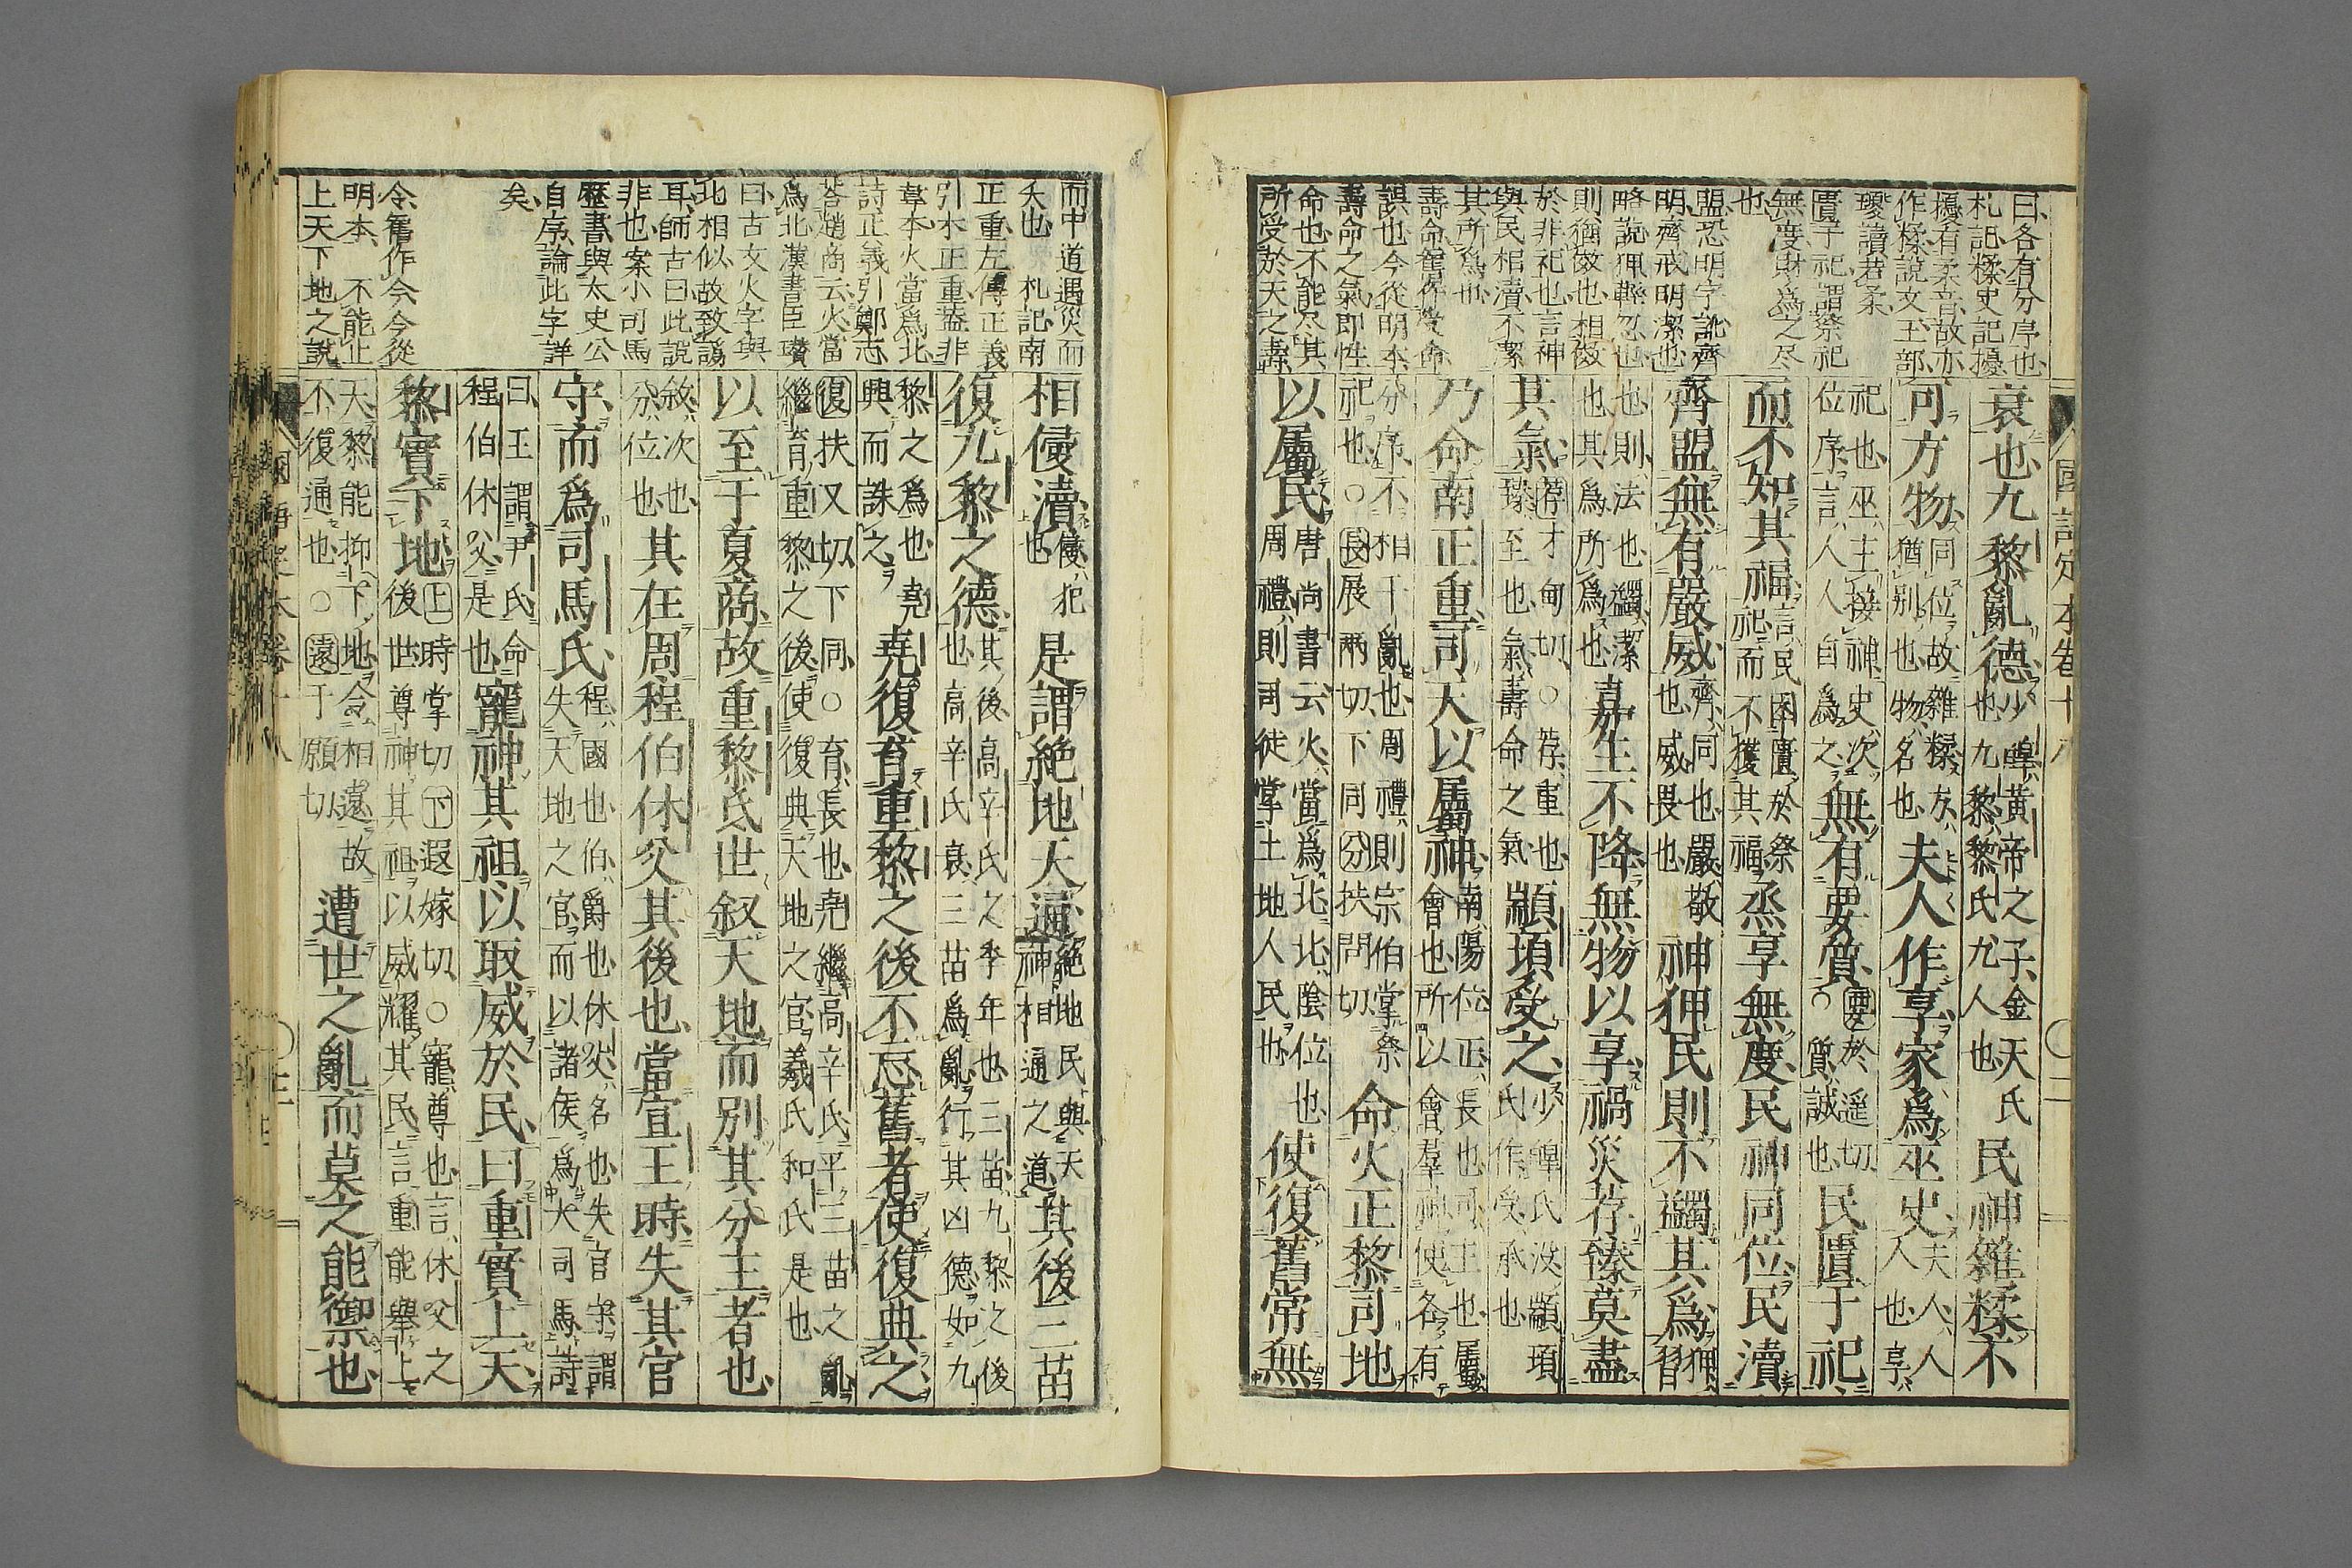 曰各有分序也
札記糅史記擾
擾有柔音故亦
作糅說文玉部
瓇讀若柔
匱于祀謂祭祀
無度財為之尽
也
盟恐明字訛齊
明齊戒明潔也
略說狎輕忽也
則猶傚也相傚
於非祀也言神
與民相瀆不潔
其所為也
壽命舊作受命
誤也今從明本
壽命之氣即性
命也不能尽其
所受於天之壽
國語定本卷十八 〇二
衰也九黎亂德少皞黃帝之子金天氏也九黎黎氏九人也民神雜糅不
可方物同位故雜糅方猶別也物名也夫人作享家爲巫史夫人人人也享
祀也巫主接神史次位序言人人自爲之無有要質要於遥切○質誠也民匱于祀
而不知其福言民困匱於祭祀而不獲其福烝享無度民神同位民瀆
齊盟無有嚴威齊同也嚴敬也威畏也神狎民則不蠲其爲狎習
也則法也蠲潔也其爲所爲也嘉生不降無物以享禍災荐臻莫盡
其氣荐才甸切○荐重也臻至也氣壽命之氣顓頊受之少皞氏没顓頊氏作受承也
乃命南正重司天以屬神南陽位正長也司主也屬會也所以會羣神使各有
分序不相干亂也周禮則宗伯掌祭祀也○長展兩切下同分扶問切命火正黎司地
以屬民唐尚書云火當爲北北陰位也周禮則司徒掌土地人民也使復舊常無
而中道遇災而
夭也 札記南
正重左傳正義
引本正重蓋非
韋本火當爲北
詩正義引鄭志
荅趙商云火當
爲北漢書臣瓚
曰古文火字與
北相似故致譌
耳師古曰此說
非也案小司馬
歷書與太史公
自序論此字詳
矣
令舊作今今從
明本 不能止
上天下地之說
相侵瀆侵犯也是謂絕地天通絕地民與天神相通之道其後三苗
復九黎之德其後高辛氏之季年也三苗九黎之後也高辛氏衰三苗爲亂行其凶德如九
黎之爲也堯興而誅之堯復育重黎之後不忘舊者使復典之
復扶又切下同○育長也堯繼高辛氏平三苗之亂繼育重黎之後使復典天地之官羲氏和氏是也
以至于夏商故重黎氏世叙天地而別其分主者也
敘次也分位也其在周程伯休父其後也當宣王時失其官
守而爲司馬氏程國也伯爵也休父名也失官守謂失天地之官而以諸侯爲大司馬詩
曰王謂尹氏命程伯休父是也寵神其祖以取威於民曰重實上天
黎實下地上時掌切下遐嫁切○寵尊也言休父之後世尊神其祖以威耀其民言重能舉上
天黎能抑下地令相遠故不復通也○遠于願切遭世之亂而莫之能禦也
國語定本卷十八 〇三